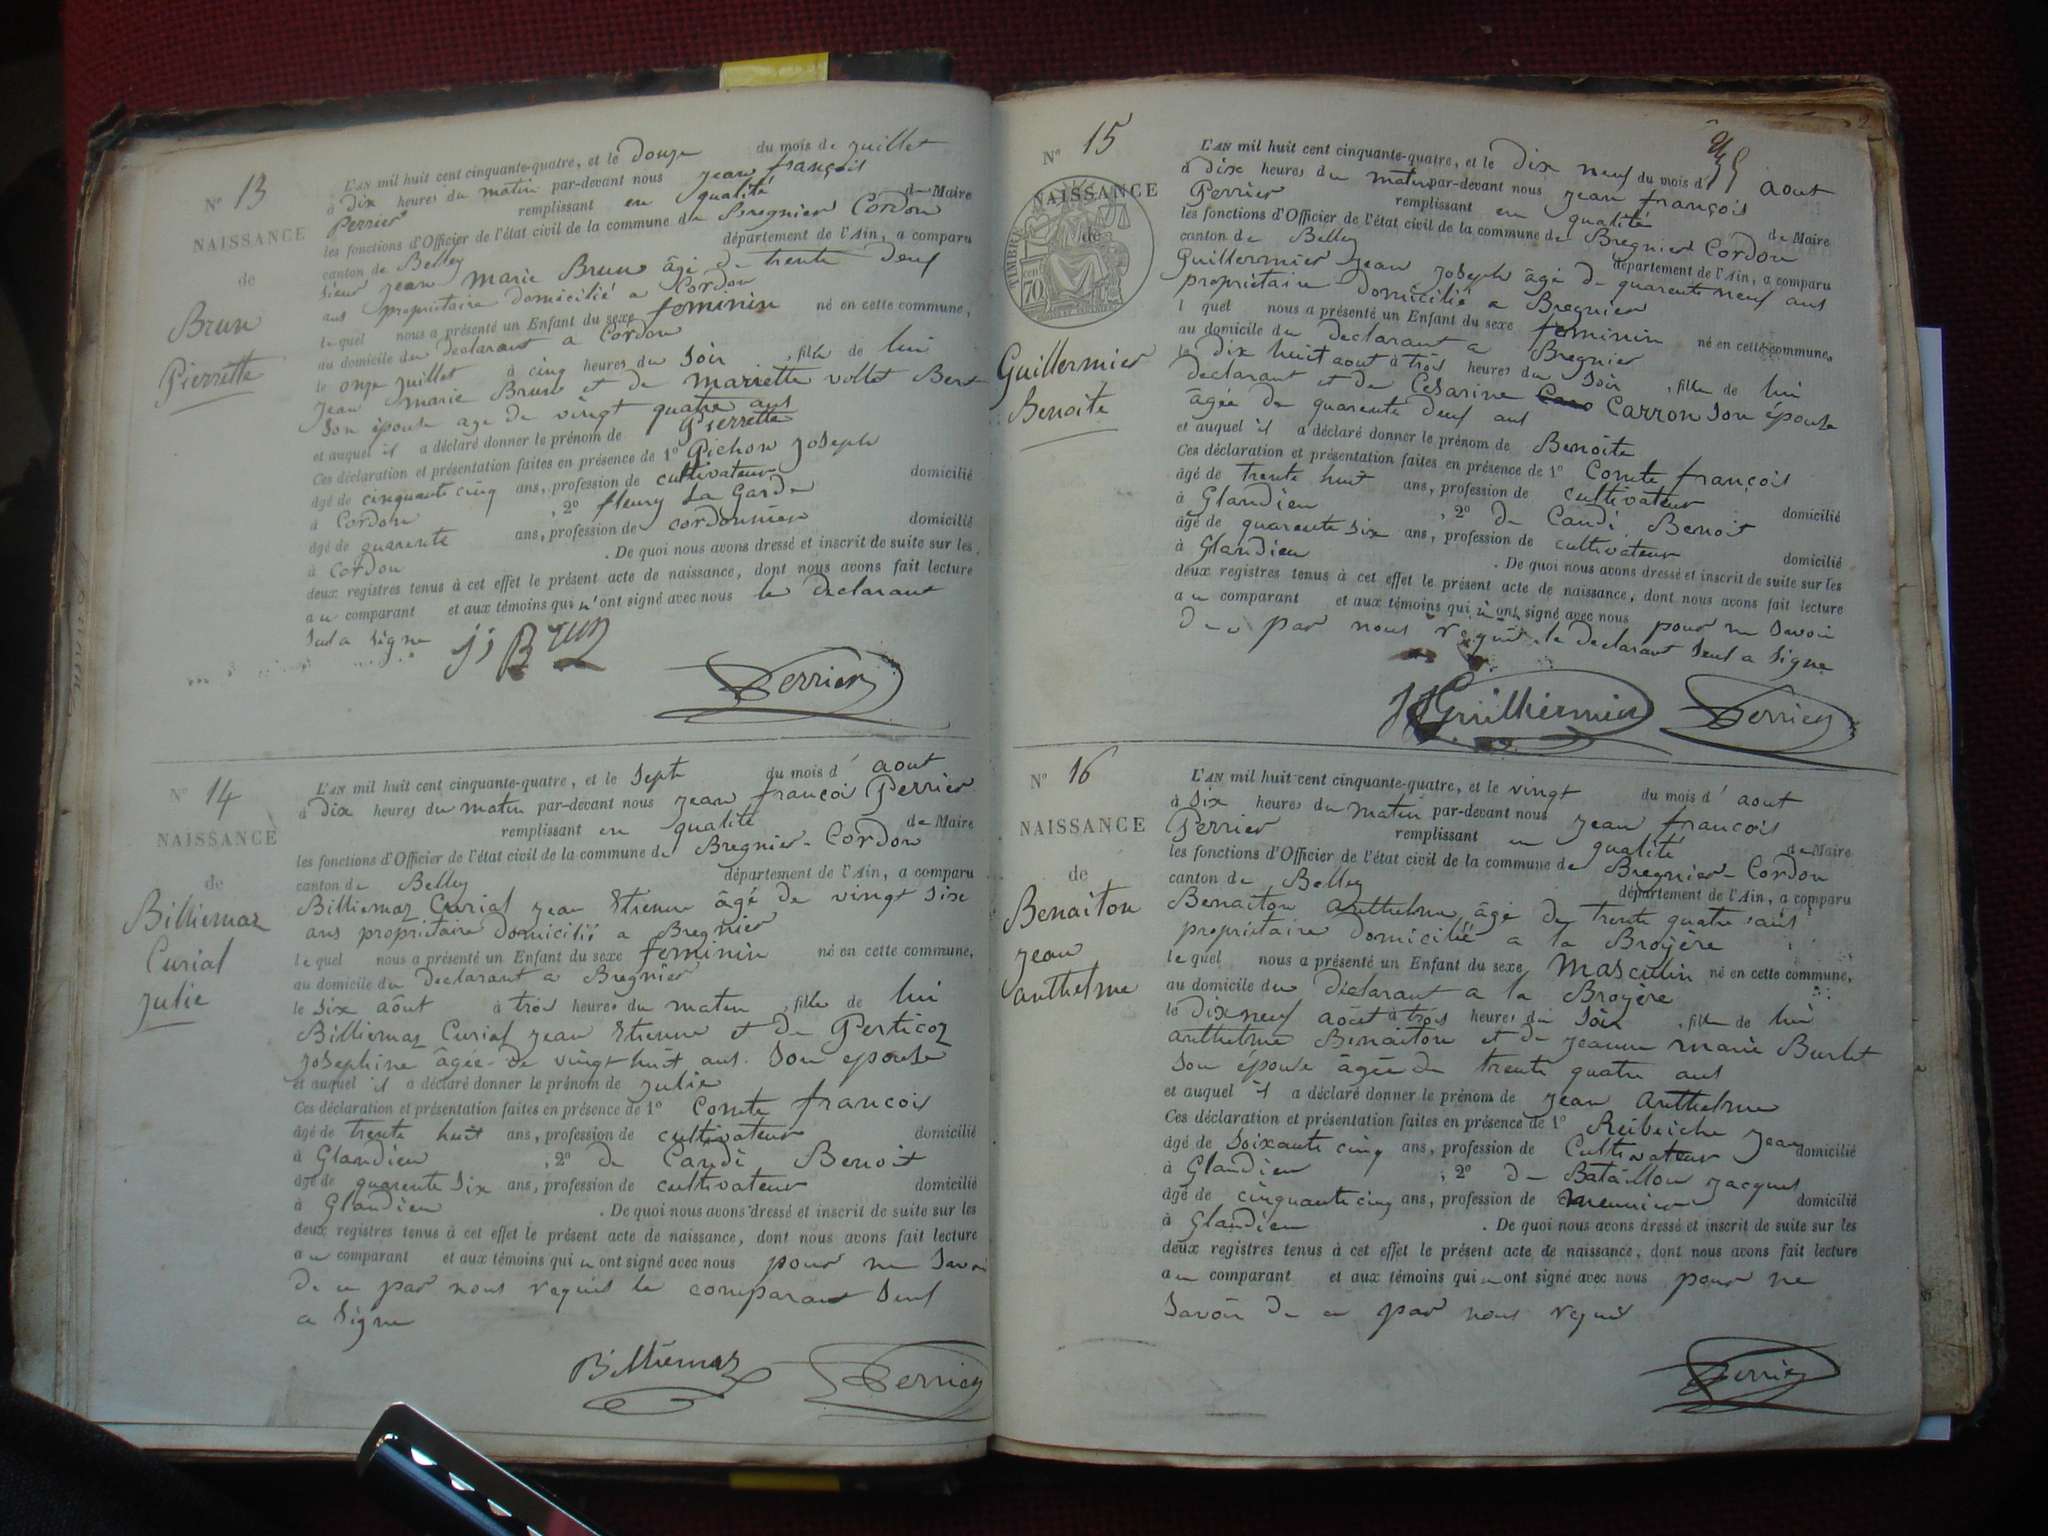 N° 13
NAISSANCE
de
Brun
Pierrette
L'AN mil huit cent cinquante-quatre, et le Douze du mois de juillet
à Dix heures du matin par-devant nous jean françois
Perrier remplissant en qualité de Maire
les fonctions d'Officier de l'état civil de la commune de Bregnier Cordon
canton de Belley département de l'Ain, a comparu
sieur jean Marie Brun âgé de trente Deux
ans propriétaire domicilié a Cordon
lequel nous a présenté un Enfant du sexe feminin né en cette commune,
au domicile du Declarant a Cordon
le onze juillet à cinq heures du Soir, fille de lui
jean Marie Brun et de Mariette vollet Bert
son épouse age de vingt quatre ans
et auquel il a déclaré donner le prénom de Pierrette
Ces déclaration et présentation faites en présence de 1° Pichon joseph
âgé de cinquante cinq ans, profession de cultivateur domicilié
à Cordon, 2° fleury La Garde
âgé de quarente ans, profession de cordonnier domicilié
à Cordon. De quoi nous avons dressé et inscrit de suite sur les
deux registres tenus à cet effet le présent acte de naissance, dont nous avons fait lecture
au comparant et aux témoins qui n'ont signé avec nous le declarant
seul a signe
Brun
Perrier
N° 14
NAISSANCE
de
Billiemaz
Curial
julie
L'AN mil huit cent cinquante-quatre, et le sept du mois d'aout
à Dix heures du matin par-devant nous jean françoi Perrier
remplissant en qualité de Maire
les fonctions d'Officier de l'état civil de la commune de Bregnier-Cordon
canton de Belley département de l'Ain, a comparu
Billiemaz Curial jean Etienne âgé de vingt six
ans propriétaire domicilié a Bregnier
lequel nous a présenté un Enfant du sexe feminin né en cette commune,
au domicile du Declarant a Bregnier
le six aôut à trois heures du matin, fille de lui
Billiemaz Curial jean Etienne et de Perticoz
josephine âgée de vingt huit ans son epouse
et auquel il a déclaré donner le prénom de julie
Ces déclaration et présentation faites en présence de 1° Comte francois
âgé de trente huit ans, profession de cultivateur domicilié
à Glandieu, 2° de Candi Benoit
âgé de quarente six ans, profession de cultivateur domicilié
à Glandieu. De quoi nous avons dressé et inscrit de suite sur les
deux registres tenus à cet effet le présent acte de naissance, dont nous avons fait lecture
au comparant et aux témoins qui n ont signé avec nous pour ne savoi
de ce par nous requis le comparant seul
a signe
Billiemaz
Perrier
N° 15
NAISSANCE
de
TIMBRE
70
Guillermier
Benoite
L'AN mil huit cent cinquante-quatre, et le Dix neuf du mois d'aout
à Dix heures du matin par-devant nous jean françois
Perrier remplissant en qualité de Maire
les fonctions d'Officier de l'état civil de la commune de Bregnier Cordon
canton de Belley département de l'Ain, a comparu
Guillermier jean joseph âgé de quarente neuf ans
propriétaire domicilié a Bregnier
l quel nous a présenté un Enfant du sexe feminin né en cette commune,
au domicile du declarant a Bregnier
le dix huit aout à trois heures du Soir, fille de lui
declarant et de Cesarine Carron son épouse
âgée de quarente deux ans
et auquel il a déclaré donner le prénom de Benoite
Ces déclaration et présentation faites en présence de 1° Comte françois
âgé de trente huit ans, profession de cultivateur domicilié
à Glandieu, 2° de Candi Benoit
âgé de quarente six ans, profession de cultivateur domicilié
à Glandieu. De quoi nous avons dressé et inscrit de suite sur les
deux registres tenus à cet effet le présent acte de naissance, dont nous avons fait lecture
au comparant et aux témoins qui n ont signé avec nous pour ne savoir
de ce par nous requis le declarant seul a signe
Guilhermier Perrier
N° 16
NAISSANCE
de
Benaiton
jean
anthelme
L'AN mil huit cent cinquante-quatre, et le vingt du mois d'aout
à Dix heures du matin par-devant nous jean françois
Perrier remplissant en qualité de Maire
les fonctions d'Officier de l'état civil de la commune de Bregnier-Cordon
canton de Belley département de l'Ain, a comparu
Benaiton anthelme âgé de trente quatre ans
propriétaire domicilié a la Broyère
lequel nous a présenté un Enfant du sexe Masculin né en cette commune,
au domicile du Déclarant a la Broyère
le dix neuf aout à trois heures du Soir, fille de lui
anthelme Benaiton et de jeanne marie Burlet
son épouse âgée de trente quatre ans
et auquel il a déclaré donner le prénom de jean anthelme
Ces déclaration et présentation faites en présence de 1° Reibeiche jean
âgé de soixante cinq ans, profession de Cultivateur domicilié
à Glandieu, 2° de Bataillon jacques
âgé de cinquante cinq ans, profession de meunier domicilié
à Glandieu. De quoi nous avons dressé et inscrit de suite sur les
deux registres tenus à cet effet le présent acte de naissance, dont nous avons fait lecture
au comparant et aux témoins qui n ont signé avec nous pour ne
savoir de ce par nous requis
Perrier